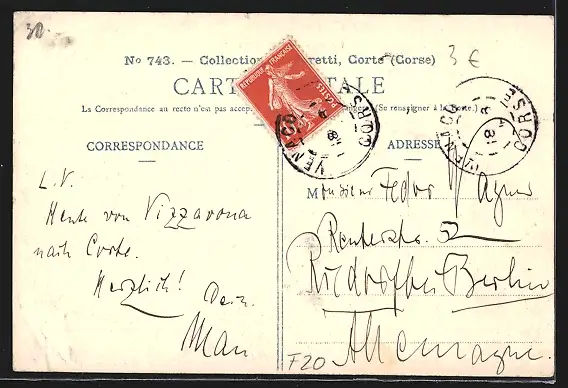 30.
3 €
No 743. — Collection retti, Corte (Corse)
CART TALE
La Correspondance au recto n'est pas accep (Se renseigner à la Poste.)
REPUBLIQUE FRANÇAISE
POSTES
CORSE
CORSE
CORRESPONDANCE
ADRESSE
L. V.
Heute von Vizzavona
nach Corte.
Herzlich!
Dein
Max
Monsieur Fedor Wagner
Renterstr. 52
Rixdorf bei Berlin
Allemagne.
F20